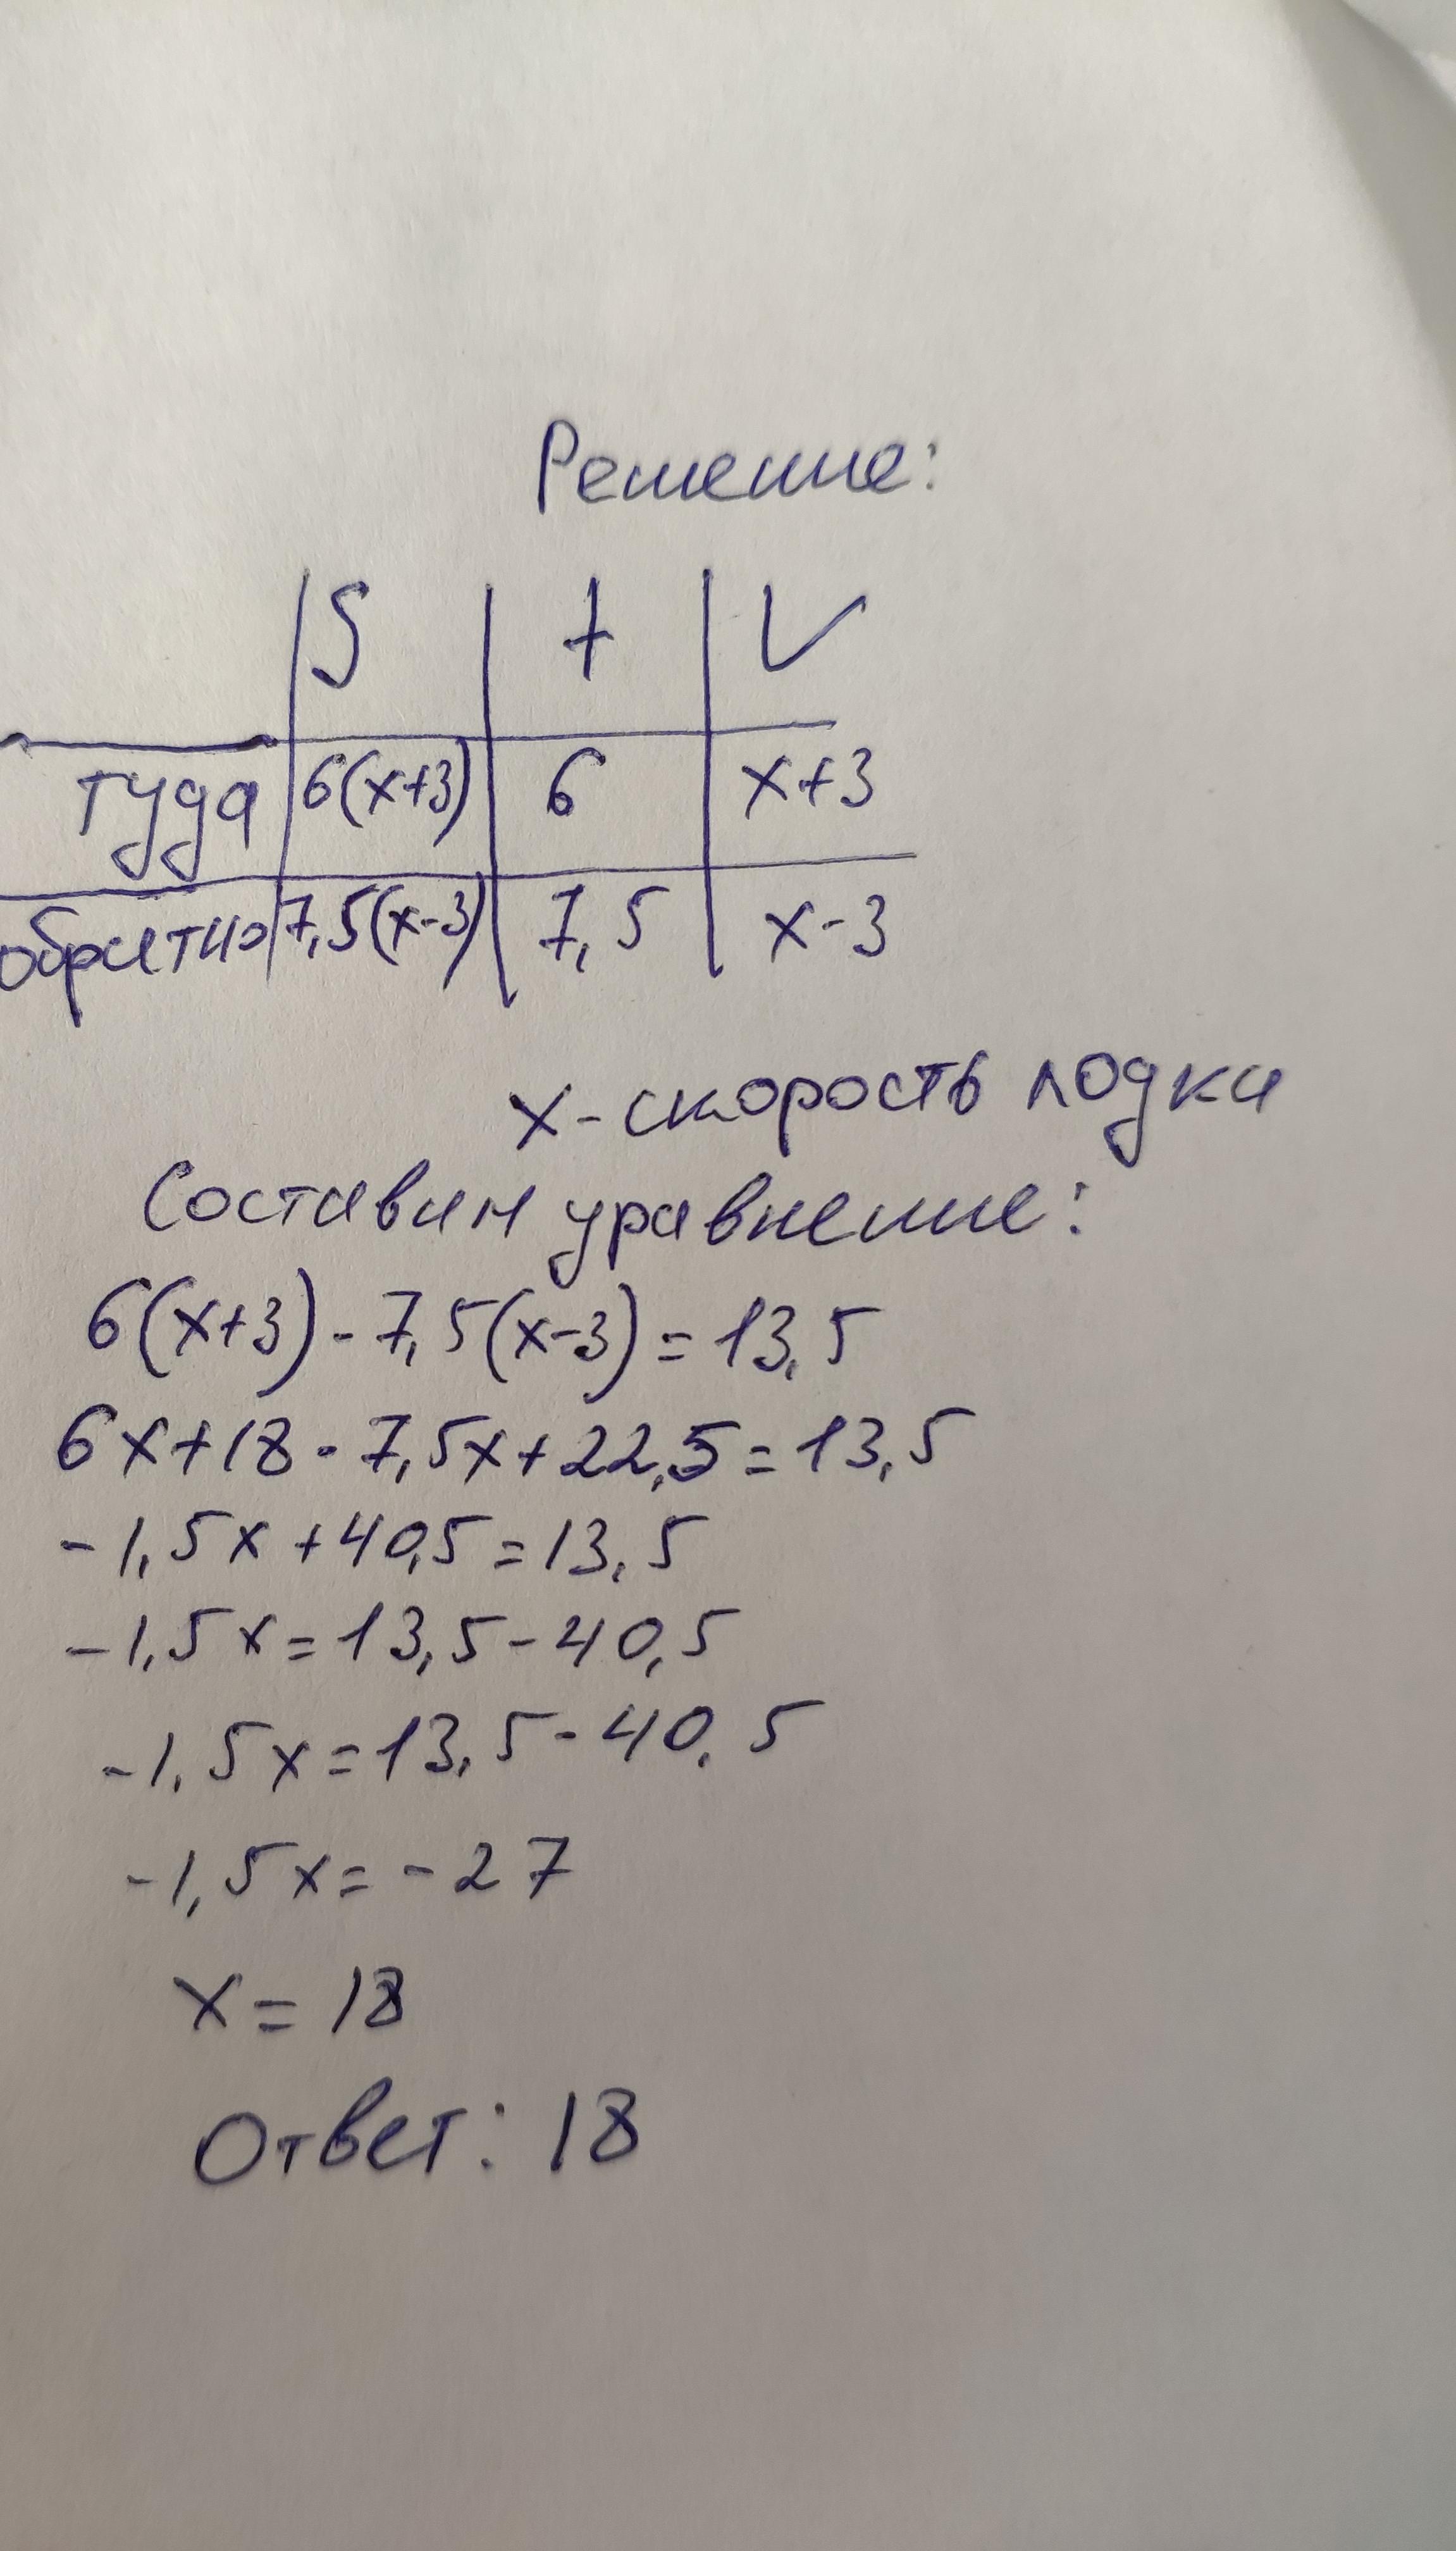 Решение:
S t V
туда 6(x+3) 6 x+3
обратно 7,5(x-3) 7,5 x-3
x-скорость лодки
Составим уравнение:
6(x+3)-7,5(x-3)=13,5
6x+18-7,5x+22,5=13,5
-1,5x+40,5=13,5
-1,5x=13,5-40,5
-1,5x=13,5-40,5
-1,5x=-27
x=18
Ответ: 18